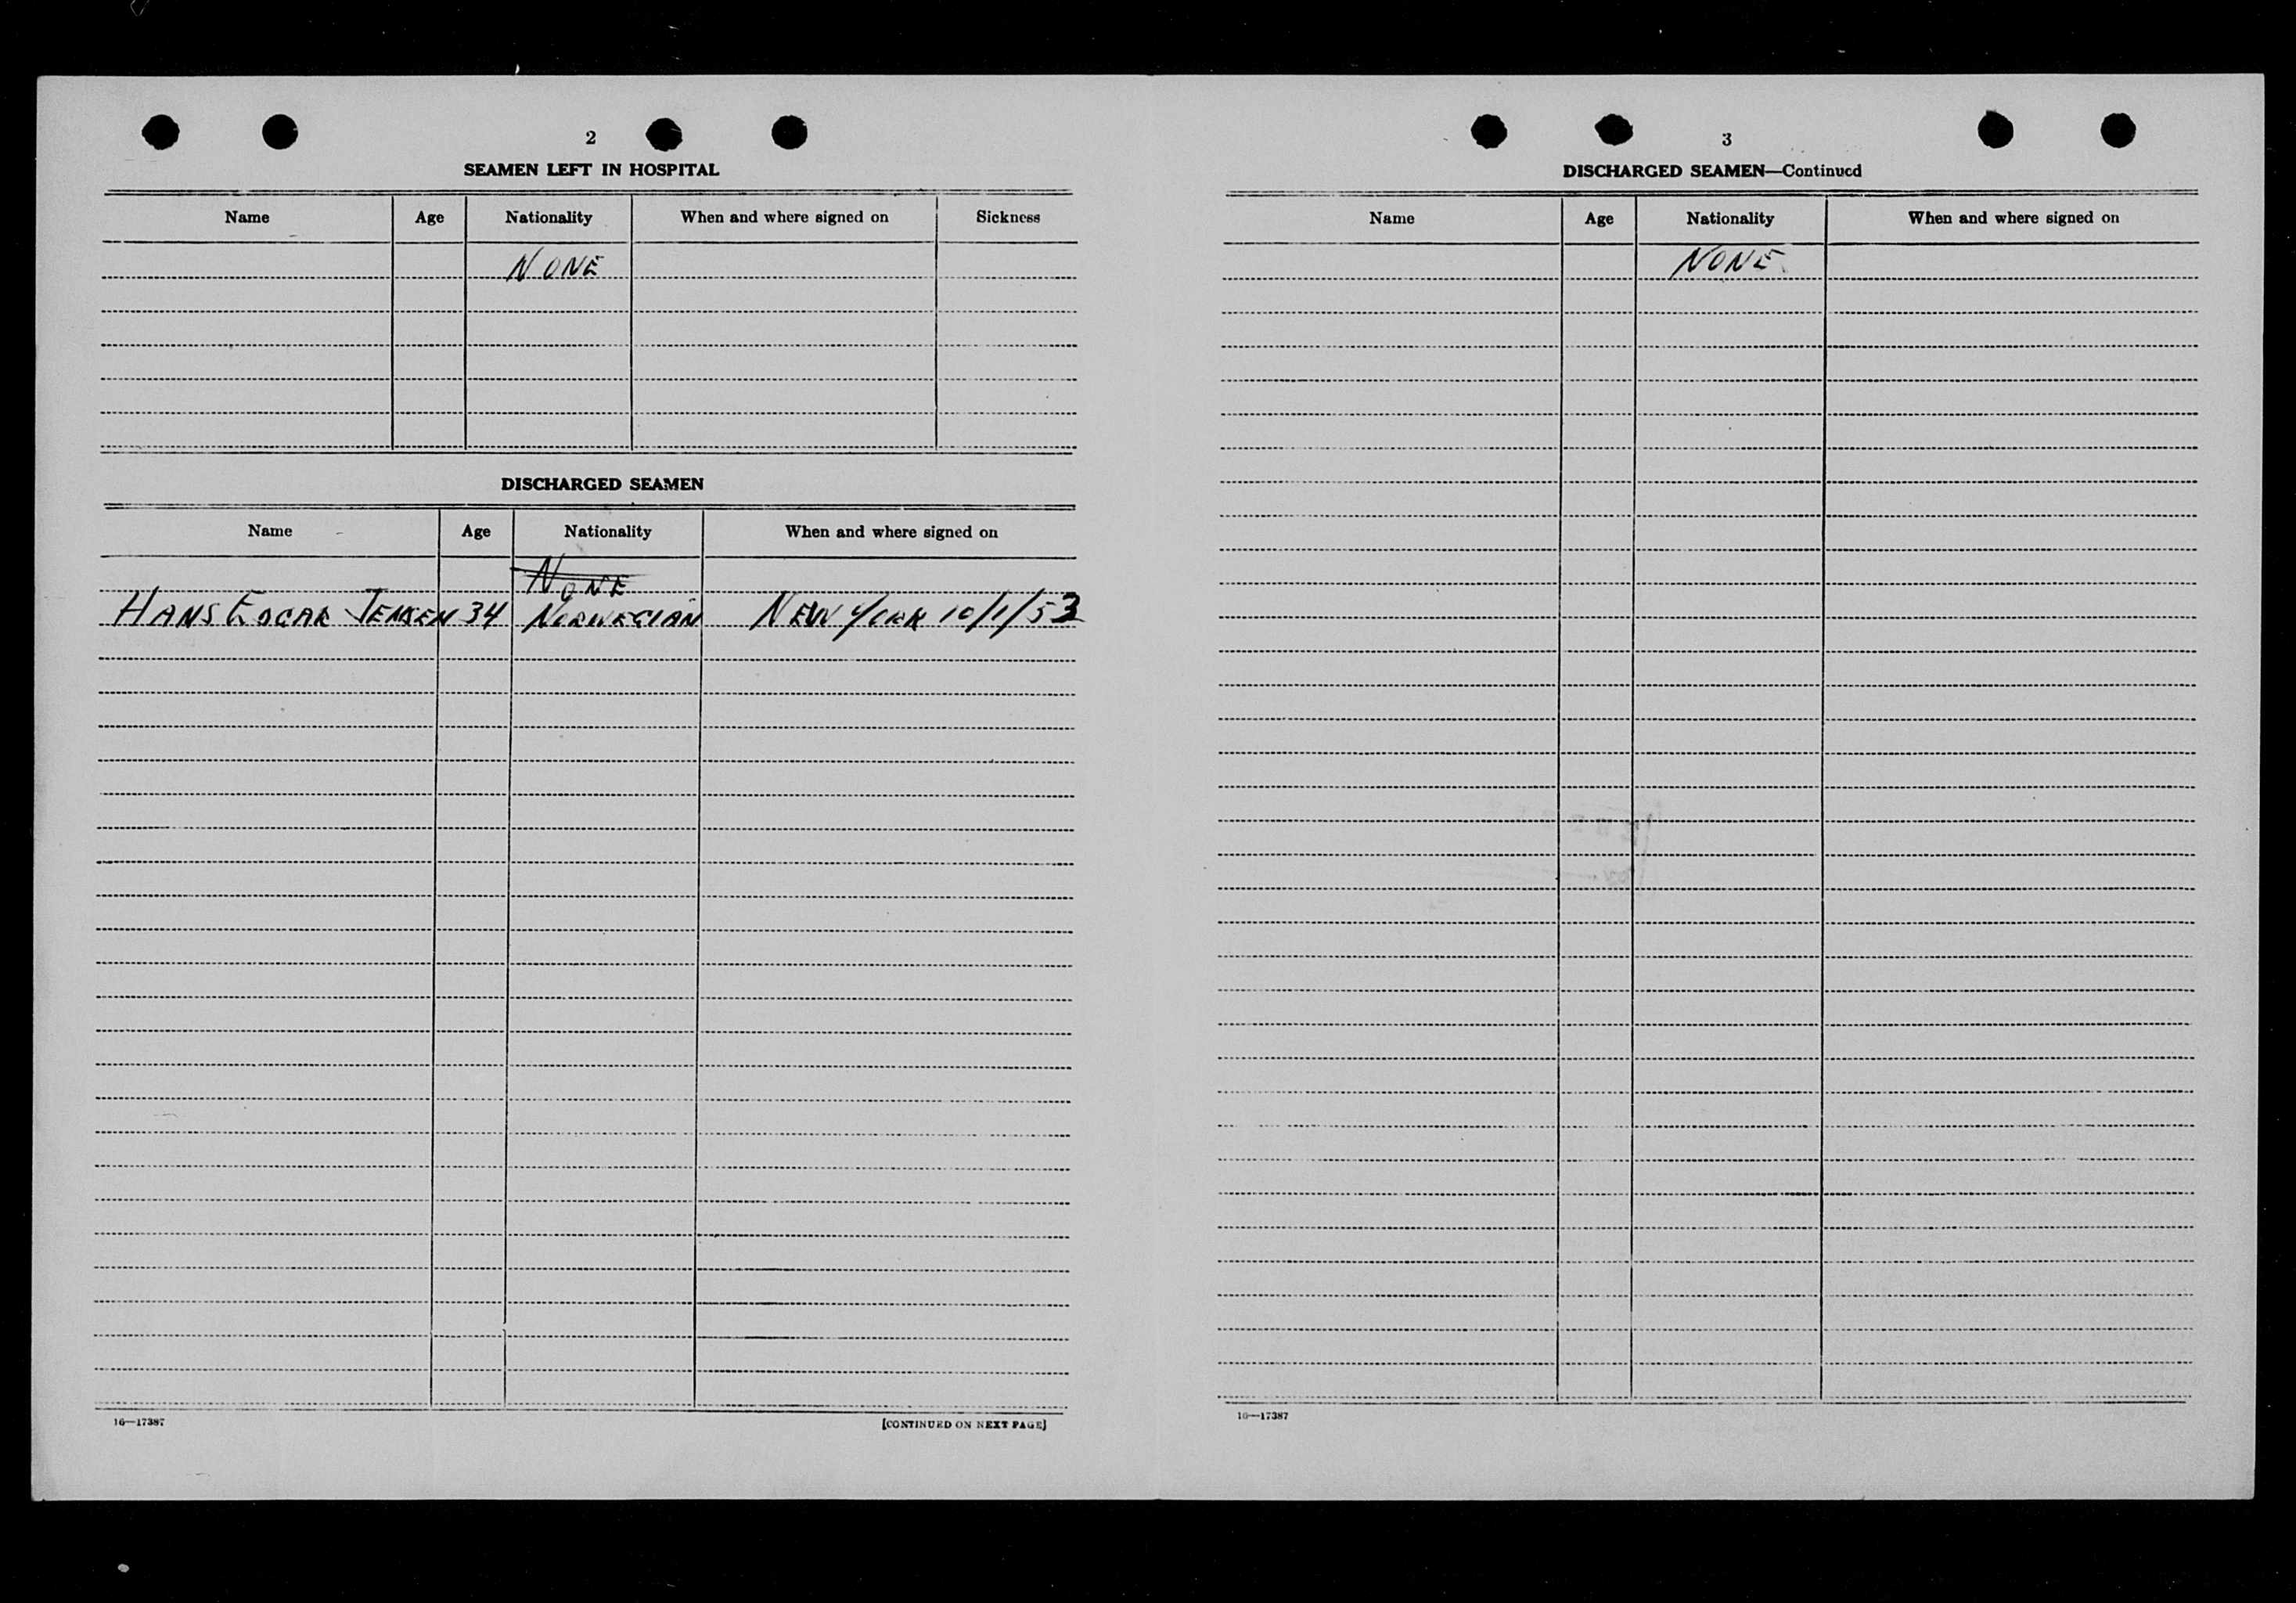 2
SEAMEN LEFT IN HOSPITAL
Name Age Nationality When and where signed on Sickness
NONE
DISCHARGED SEAMEN
Name Age Nationality When and where signed on
NONE
HANS EDGAR JENSEN 34 NORWEGIAN NEW YORK 10/1/53
16—17387
[CONTINUED ON NEXT PAGE]
3
DISCHARGED SEAMEN—Continued
Name Age Nationality When and where signed on
NONE
16—17387